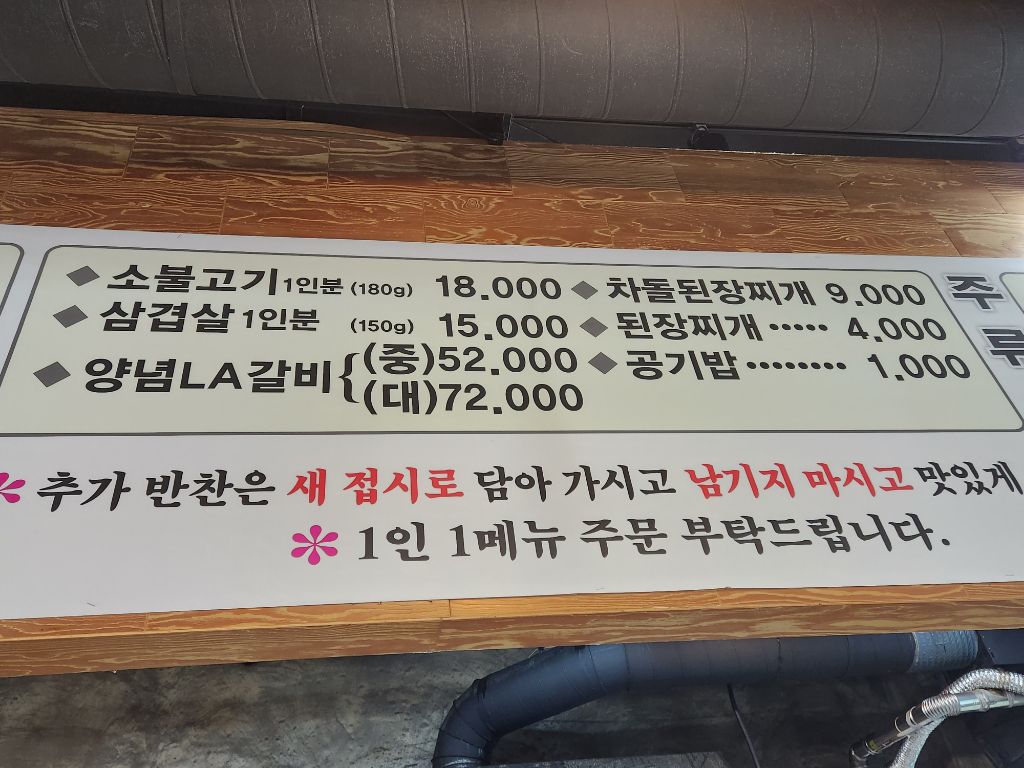 ◆ 소불고기 1인분 (180g) 18.000
◆ 삼겹살 1인분 (150g) 15.000
◆ 양념LA갈비 { (중) 52.000
(대) 72.000
◆ 차돌된장찌개 9.000
◆ 된장찌개 ····· 4.000
◆ 공기밥 ········· 1.000
주
루
* 추가 반찬은 새 접시로 담아 가시고 남기지 마시고 맛있게
* 1인 1메뉴 주문 부탁드립니다.